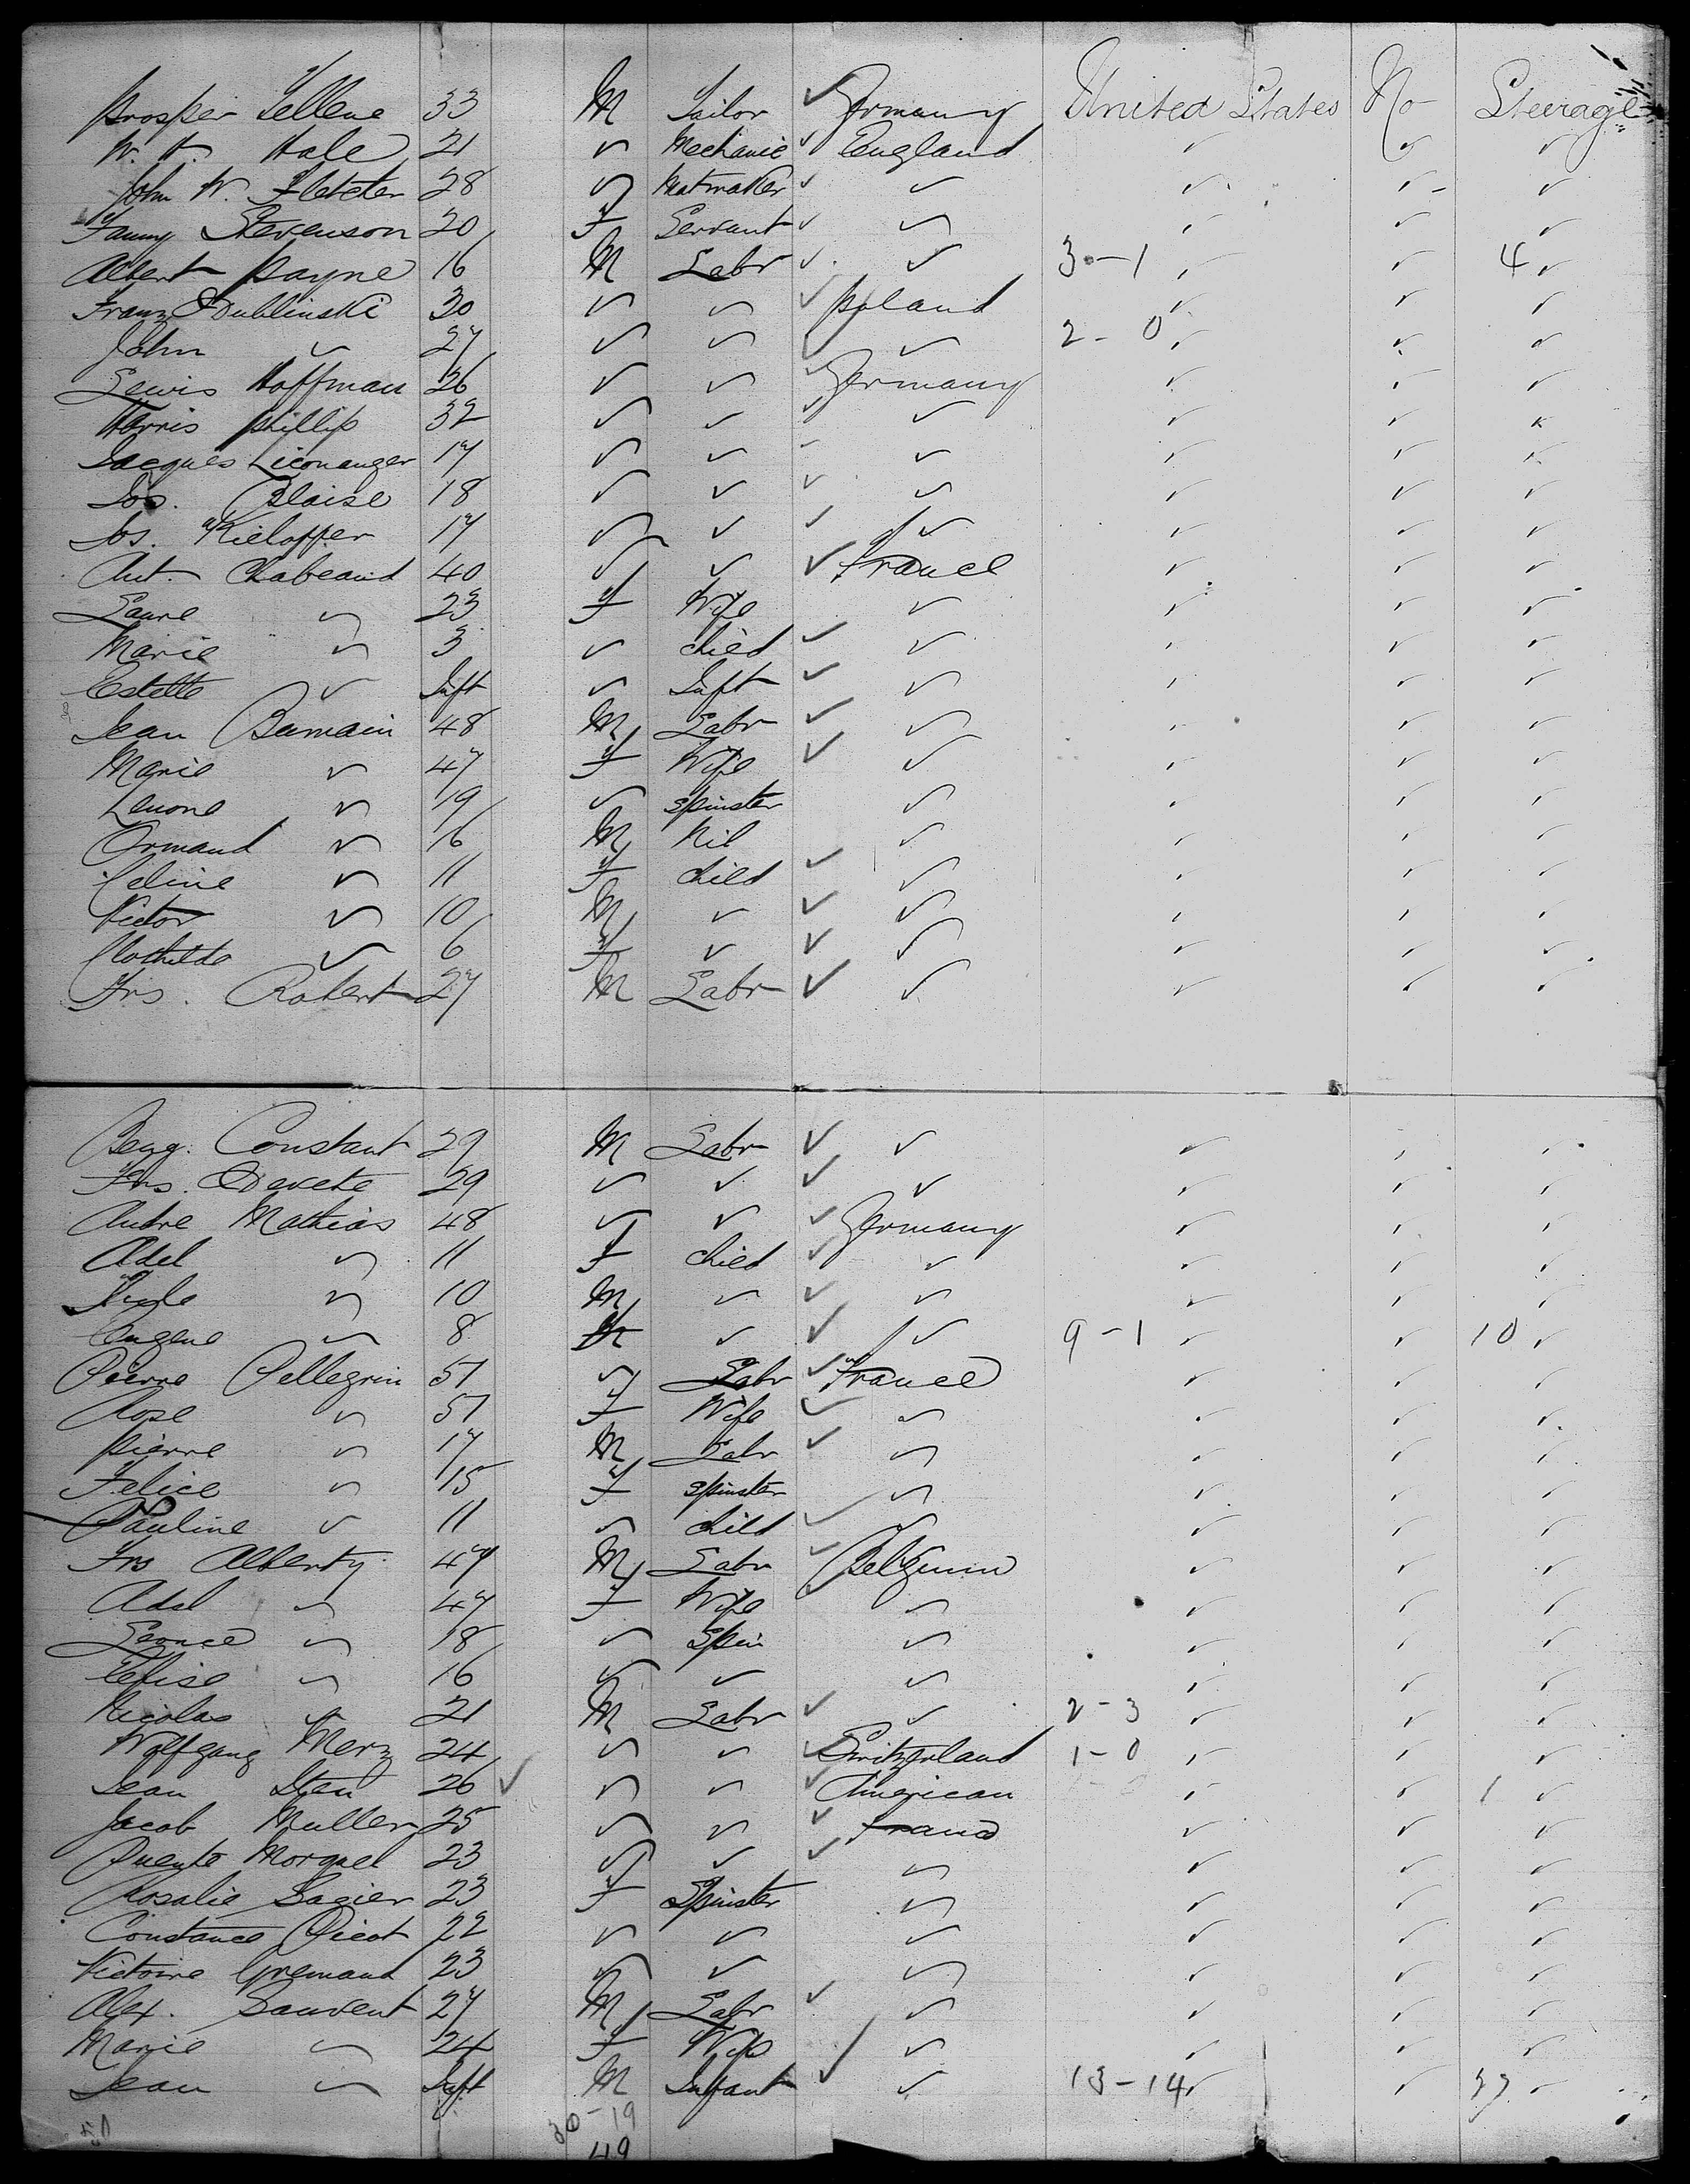 Prosper Tellene 33 M Tailor ✓ Germany United States No Steerage
W. H. Hale 21 ✓ Mechanic ✓ England ✓ ✓ ✓
John W. Fletcher 28 ✓ Matmaker ✓ ✓ ✓ ✓ ✓
Fanny Stevenson 20 F Servant ✓ ✓ ✓ ✓ ✓
Albert Payne 16 M Labr ✓ ✓ 3-1 ✓ ✓ 4 ✓
Franz Dublinski 30 ✓ ✓ ✓ Poland ✓ ✓ ✓
John ✓ 27 ✓ ✓ ✓ ✓ 2-0 ✓ ✓ ✓
Lewis Hoffman 26 ✓ ✓ ✓ Germany ✓ ✓ ✓
Harris Phillip 32 ✓ ✓ ✓ ✓ ✓ ✓ ✓
Jacques 17 ✓ ✓ ✓ ✓ ✓ ✓ ✓
Jos. Blaise 18 ✓ ✓ ✓ ✓ ✓ ✓ ✓
Jos. Kieloffer 17 ✓ ✓ ✓ ✓ ✓ ✓ ✓
Ant. Chabeaud 40 ✓ ✓ ✓ France ✓ ✓ ✓
Laure ✓ 23 F Wife ✓ ✓ ✓ ✓
Marie ✓ 3 ✓ child ✓ ✓ ✓ ✓ ✓
Estelle ✓ Inft ✓ Inft ✓ ✓ ✓ ✓ ✓
Jean Bamain 48 M Labr ✓ ✓ ✓ ✓ ✓
Marie ✓ 47 F Wife ✓ ✓ ✓ ✓ ✓
Leuone ✓ 19 ✓ spinster ✓ ✓ ✓ ✓
Ormand ✓ 16 M Nil ✓ ✓ ✓ ✓
Celine ✓ 11 F child ✓ ✓ ✓ ✓ ✓
Victor ✓ 10 M ✓ ✓ ✓ ✓ ✓ ✓
Clothilde ✓ 6 F ✓ ✓ ✓ ✓ ✓ ✓
Frs. Robert 27 M Labr ✓ ✓ ✓ ✓ ✓
Constant 29 M Labr ✓ ✓ ✓ ✓ ✓
Frs. Devete 29 ✓ ✓ ✓ ✓ ✓ ✓ ✓
Andre Mathias 48 ✓ ✓ ✓ Germany ✓ ✓ ✓
Adel ✓ 11 F child ✓ ✓ ✓ ✓ ✓
✓ 10 M ✓ ✓ ✓ ✓ ✓ ✓
Eugene ✓ 8 M ✓ ✓ ✓ 9-1 ✓ ✓ 10 ✓
Pierre Pellegrin 51 ✓ Labr ✓ France ✓ ✓ ✓
Rose ✓ 51 F Wife ✓ ✓ ✓ ✓ ✓
Pierre ✓ 17 M Labr ✓ ✓ ✓ ✓ ✓
Felice ✓ 15 F spinster ✓ ✓ ✓ ✓
Pauline ✓ 11 ✓ child ✓ ✓ ✓ ✓ ✓
Frs Alberty 47 M Labr ✓ Belgium ✓ ✓ ✓
Adel ✓ 47 F Wife ✓ ✓ ✓ ✓ ✓
Leonce ✓ 18 ✓ Spin ✓ ✓ ✓ ✓
Elise ✓ 16 ✓ ✓ ✓ ✓ ✓ ✓
Nicolas ✓ 21 M Labr ✓ ✓ 2-3 ✓ ✓ ✓
Wolfgang Merz 24 ✓ ✓ ✓ Switzerland 1-0 ✓ ✓ ✓
Jean Sten 26 ✓ ✓ ✓ ✓ American ✓ ✓ 1 ✓
Jacob Muller 25 ✓ ✓ ✓ France ✓ ✓ ✓
Morquel 23 ✓ ✓ ✓ ✓ ✓ ✓ ✓
Rosalie Sagier 23 F Spinster ✓ ✓ ✓ ✓
Constance Picot 22 ✓ ✓ ✓ ✓ ✓ ✓
Victoire Gremaud 23 ✓ ✓ ✓ ✓ ✓ ✓
Alex. Sauvent 27 M Labr ✓ ✓ ✓ ✓ ✓
Marie ✓ 24 F Wife ✓ ✓ ✓ ✓ ✓
Jean ✓ Inft M Infant ✓ ✓ 13-14 ✓ ✓ ✓
50 30-19
49